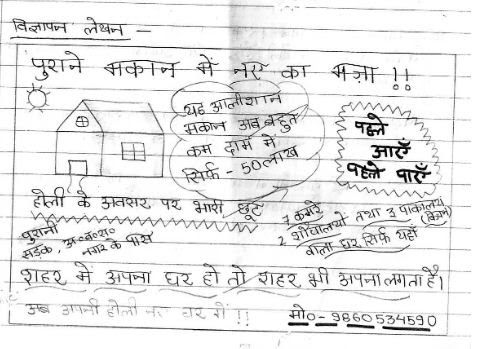 विज्ञापन लेखन —
पुराने मकान में नए का मज़ा !!
यह आलीशान
मकान अब बहुत
कम दाम में
सिर्फ - 50 लाख
पहले
आएँ
पहले पाएँ
होली के अवसर पर भारी छूट
7 कमरे
2 शौचालयो तथा 3 पाकालय
(किचन)
वाला घर सिर्फ यहाँ
पुरानी
सड़क, अ०ब०स०
नगर के पास
शहर में अपना घर हो तो शहर भी अपना लगता है।
अब अपनी होली नए घर में !!
मो०- 9860534590